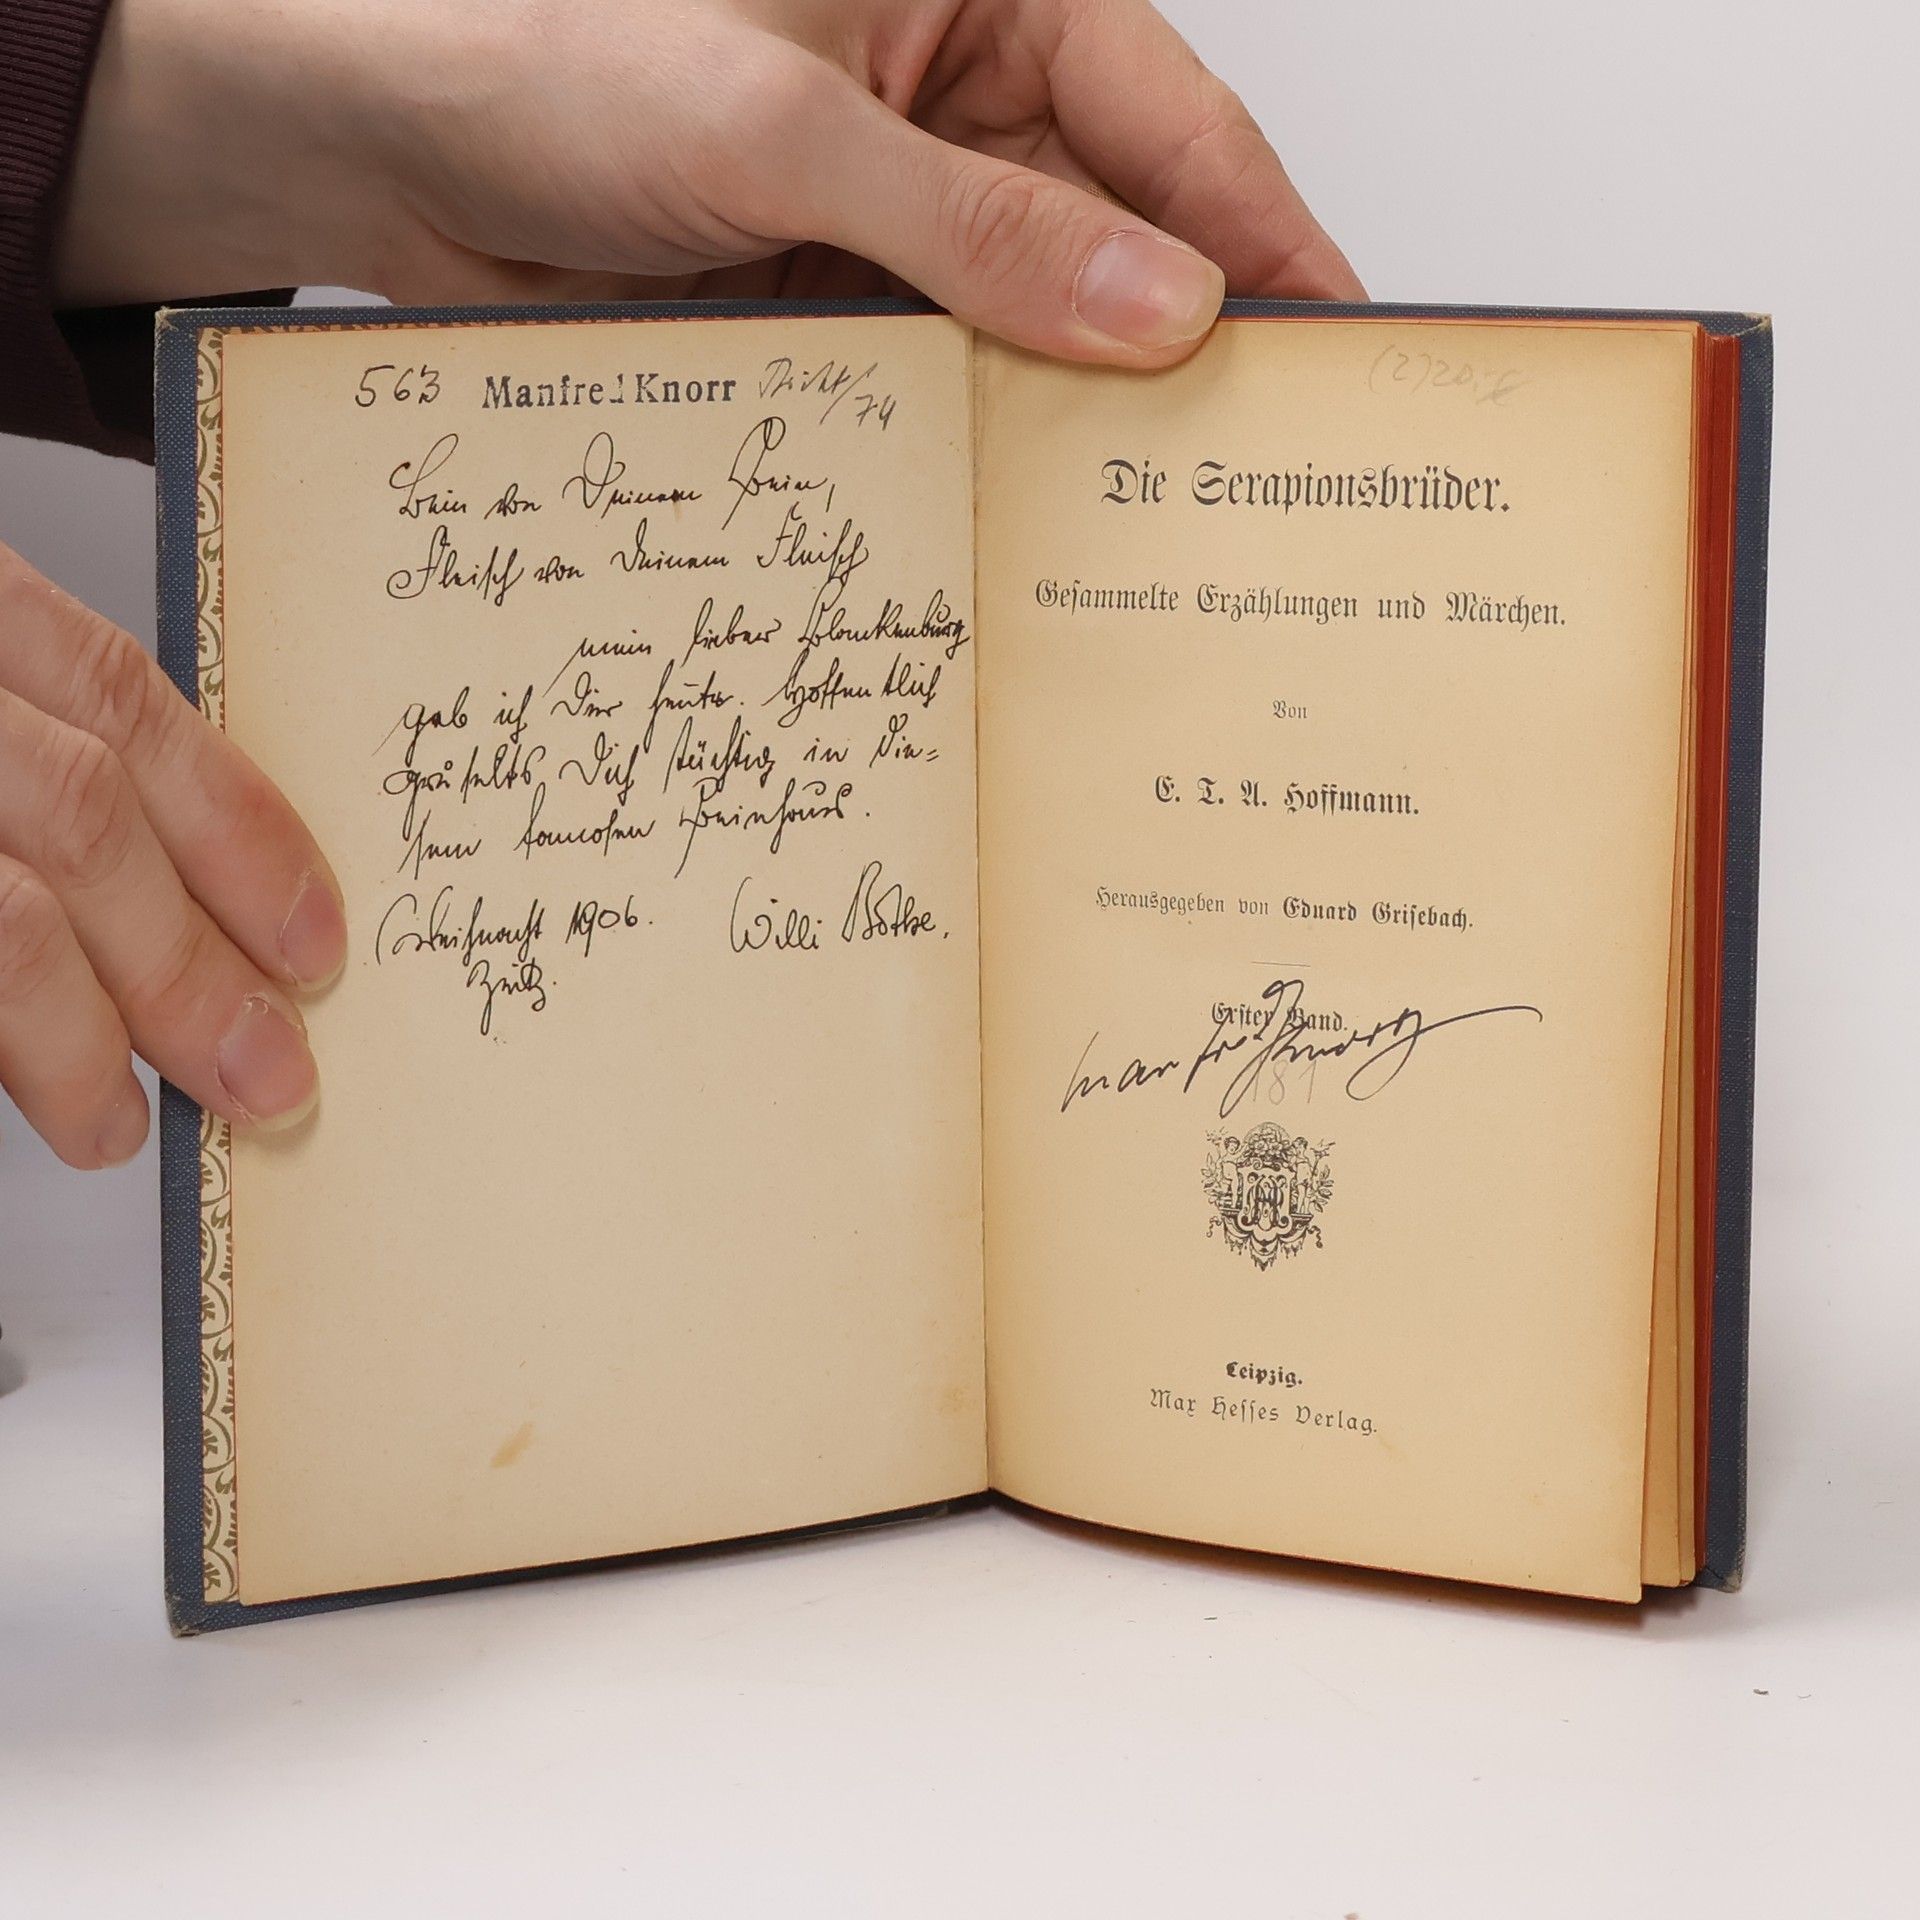 563 Manfred Knorr
74
Bein von Deinem Bein,
Fleisch von Deinem Fleisch
mein lieber Blankenburg
geb ich Dir heute. Hoffentlich
gruselts Dich tüchtig in die=
sem famosen Beinhaus.
Weihnacht 1906. Willi Bothe.
Zeitz.
Die Serapionsbrüder.
Gesammelte Erzählungen und Märchen.
Von
E. T. A. Hoffmann.
Herausgegeben von Eduard Grisebach.
Erster Band.
Manfred Knorr
181
Leipzig.
Max Hesses Verlag.